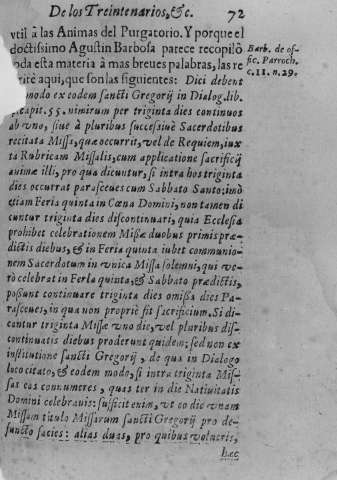 De los Treintenarios, &c. 72
vtil à las Animas del Purgatorio. Y porque el
doctissimo Agustin Barbosa parece recopilò
toda esta materia à mas breues palabras, las re
aqui, que son las siguientes: Dici debent
modo ex eodem sancti Gregorij in Dialog. lib.
capit. 55. nimirum per triginta dies continuos
ab vno, siuè à pluribus successiuè Sacerdotibus
recitata Missa, quæ occurrit, vel de Requiem, iux
ta Rubricam Missalis, cum applicatione sacrificij
animæ illi, pro qua dicuntur, si intra hos triginta
dies occurrat parasceues cum Sabbato Sancto: imò
etiam Feria quinta in Cœna Domini, non tamen di
cuntur triginta dies discontinuari, quia Ecclesia
prohibet celebrationem Missæ duobus primis præ-
dictis diebus, & in Feria quinta iubet communio-
nem Sacerdotum in vnica Missa solemni, qui ve-
rò celebrat in Feria quinta, & Sabbato prædictis,
possunt continuare triginta dies omissa dies Pa-
rasceues, in qua non propriè sit sacrificium. Si di-
cantur triginta Missæ vno die, vel pluribus dis-
continuatis diebus proderunt quidem; sed non ex
institutione sancti Gregorij, de qua in Dialogo
loco citato, & eodem modo, si intra triginta Mis-
sas eas connumeres, quas ter in die Natiuitatis
Domini celebrauis: sufficit enim, vt eo die vnam
Missam titulo Missarum sancti Gregorij pro de-
functo facies: alias duas, pro quibus volueris,
hæc
Barb. de of-
fic. Parroch.
c. 11. n. 29.